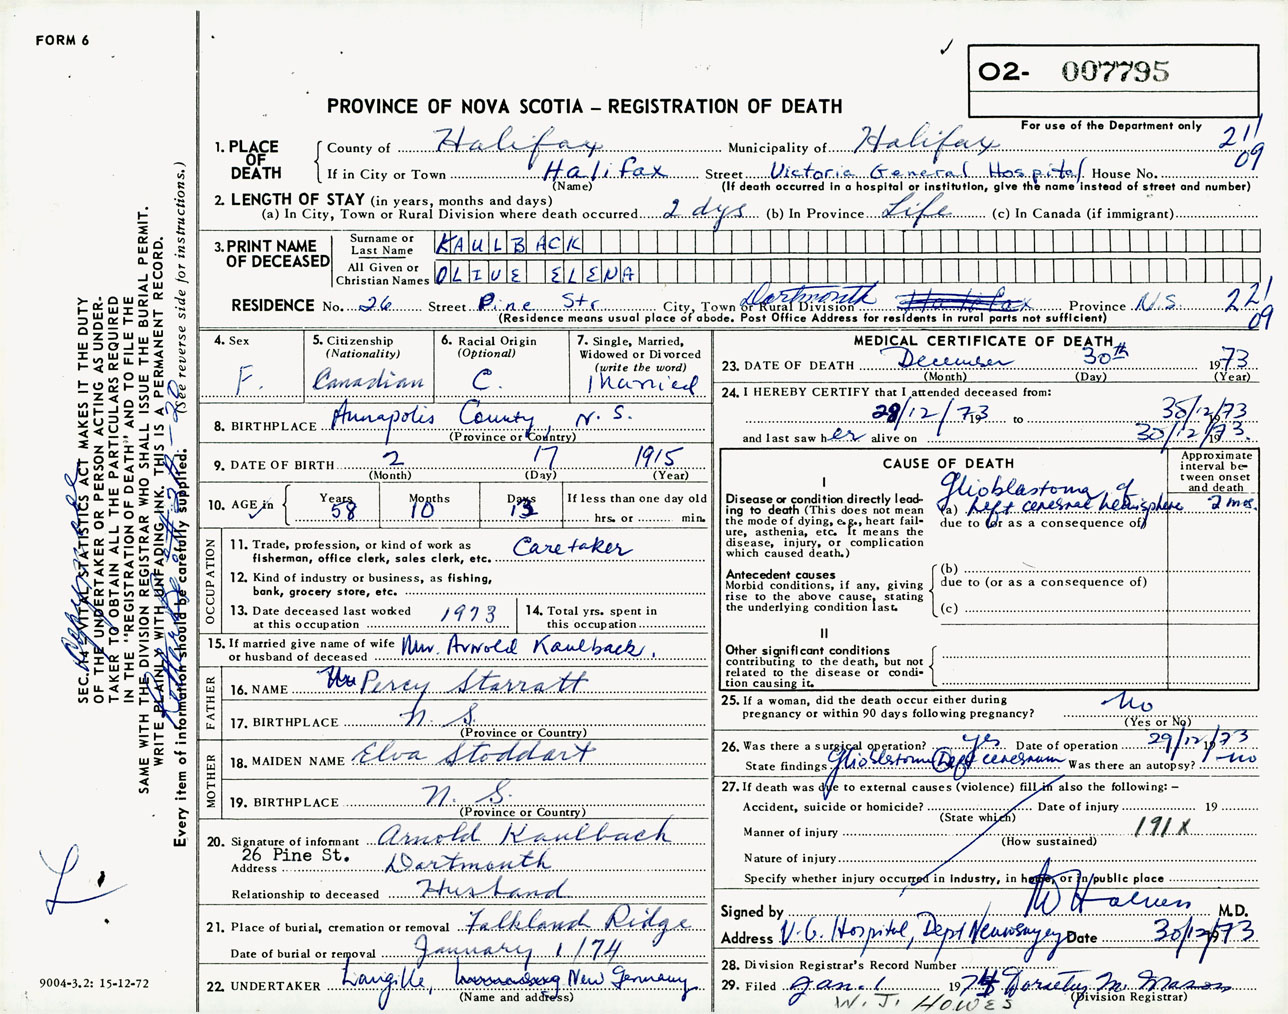 FORM 6
O2- 007795
PROVINCE OF NOVA SCOTIA – REGISTRATION OF DEATH
For use of the Department only
21/09
1. PLACE OF DEATH
County of Halifax Municipality of Halifax
If in City or Town Halifax Street Victoria General Hospital House No.
(Name) (If death occurred in a hospital or institution, give the name instead of street and number)
2. LENGTH OF STAY (in years, months and days)
(a) In City, Town or Rural Division where death occurred 2 dys (b) In Province Life (c) In Canada (if immigrant)
3. PRINT NAME OF DECEASED
Surname or Last Name KAULBACK
All Given or Christian Names OLIVE ELENA
RESIDENCE No. 26 Street Pine Str City, Town or Rural Division Dartmouth Halifax Province N.S. 22/09
(Residence means usual place of abode. Post Office Address for residents in rural parts not sufficient)
4. Sex F.
5. Citizenship (Nationality) Canadian
6. Racial Origin (Optional) C.
7. Single, Married, Widowed or Divorced (write the word) Married
8. BIRTHPLACE Annapolis County, N.S.
(Province or Country)
9. DATE OF BIRTH 2 17 1915
(Month) (Day) (Year)
10. AGE in Years 58 Months 10 Days 13 If less than one day old hrs. or min.
OCCUPATION
11. Trade, profession, or kind of work as fisherman, office clerk, sales clerk, etc. Caretaker
12. Kind of industry or business, as fishing, bank, grocery store, etc.
13. Date deceased last worked at this occupation 1973
14. Total yrs. spent in this occupation
15. If married give name of wife or husband of deceased Mr. Arnold Kaulback.
FATHER
16. NAME Percy Starratt
17. BIRTHPLACE N.S.
(Province or Country)
MOTHER
18. MAIDEN NAME Elva Stoddart
19. BIRTHPLACE N.S.
(Province or Country)
20. Signature of informant Arnold Kaulback
26 Pine St.
Address Dartmouth
Relationship to deceased Husband
21. Place of burial, cremation or removal Falkland Ridge
Date of burial or removal January 1/74
22. UNDERTAKER Langille, New Germany
(Name and address)
MEDICAL CERTIFICATE OF DEATH
23. DATE OF DEATH December 30th 1973
(Month) (Day) (Year)
24. I HEREBY CERTIFY that I attended deceased from:
29/12/73 19 to 30/12/73
and last saw her alive on 30/12/73.
CAUSE OF DEATH
Approximate interval between onset and death
I
Disease or condition directly leading to death (This does not mean the mode of dying, e.g., heart failure, asthenia, etc. It means the disease, injury, or complication which caused death.)
Glioblastoma of
(a) Left cerebral hemisphere 2 mos.
due to (or as a consequence of)
Antecedent causes
Morbid conditions, if any, giving rise to the above cause, stating the underlying condition last.
(b)
due to (or as a consequence of)
(c)
II
Other significant conditions contributing to the death, but not related to the disease or condition causing it.
25. If a woman, did the death occur either during pregnancy or within 90 days following pregnancy? No
(Yes or No)
26. Was there a surgical operation? yes Date of operation 29/12/1973
State findings Glioblastoma Left cerebrum Was there an autopsy? no
27. If death was due to external causes (violence) fill in also the following: –
Accident, suicide or homicide? Date of injury 19
(State which)
Manner of injury 191X
(How sustained)
Nature of injury
Specify whether injury occurred in Industry, in home, or in public place
Signed by M.D.
Address V.G. Hospital, Dept Neurosurgery Date 30/12/1973
28. Division Registrar's Record Number
29. Filed Jan. 1 1974 Dorothy M. Mason
(Division Registrar)
W. J. HOWES
SEC. 14 – VITAL STATISTICS ACT MAKES IT THE DUTY
OF THE UNDERTAKER OR PERSON ACTING AS UNDER-
TAKER TO OBTAIN ALL THE PARTICULARS REQUIRED
IN THE "REGISTRATION OF DEATH" AND TO FILE THE
SAME WITH THE DIVISION REGISTRAR WHO SHALL ISSUE THE BURIAL PERMIT.
WRITE PLAINLY WITH UNFADING INK. THIS IS A PERMANENT RECORD.
Every item of information should be carefully supplied. (See reverse side for instructions.)
9004-3.2: 15-12-72